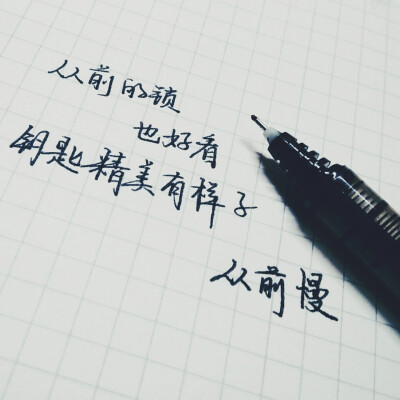 从前的锁
也好看
钥匙精美有样子
从前慢